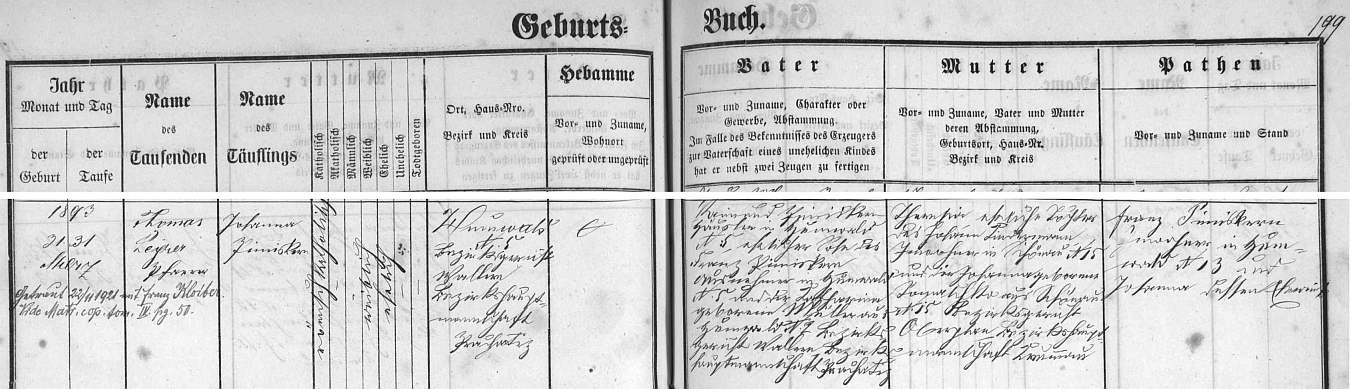 Geburts-
Buch.
199
Jahr
Monat und Tag
der
Geburt
der
Taufe
Name
des
Taufenden
Name
des
Täuflings
Katholisch
Akatholisch
Männlich
Weiblich
Ehelich
Unehelich
Todtgeboren
Ort, Haus-Nro.
Bezirk und Kreis
Hebamme
Vor- und Zuname,
Wohnort
geprüft oder ungeprüft
Vater
Vor- und Zuname, Charakter oder
Gewerbe, Abstammung.
Im Falle des Bekenntnisses des Erzeugers
zur Vaterschaft eines unehelichen Kindes
hat er nebst zwei Zeugen zu fertigen
Mutter
Vor- und Zuname, Vater und Mutter
deren Abstammung,
Geburtsort, Haus-Nr.
Bezirk und Kreis
Pathen
Vor- und Zuname und Stand
1893
31 31
März
Getraut 22/11 1921 mit Franz Kloiber.
Vide Matr. cop. tom. IV. pg. 50.
Thomas
Pfarrer
Johanna
Piniskern
Katholisch
N 5
Bezirksgericht
Wallern
Bezirkshaupt-
mannschaft
Prachatitz
Piniskern
Häusler in
N 5 ehelicher Sohn des
Franz Piniskern
Ausnehmer in
N 5 und der Katharina
geborene aus
N Bezirks-
gericht Wallern Bezirks-
hauptmannschaft Prachatitz
Theresia eheliche Tochter
des Johann
Inwohner in Schönau N 15
und der Johanna geborene
aus Schönau
N 15 Bezirksgericht
Oberplan Bezirkshaupt-
mannschaft Krummau
Franz Piniskern
Inwohner in Hum-
wald N 13 und
Johanna dessen Eheweib